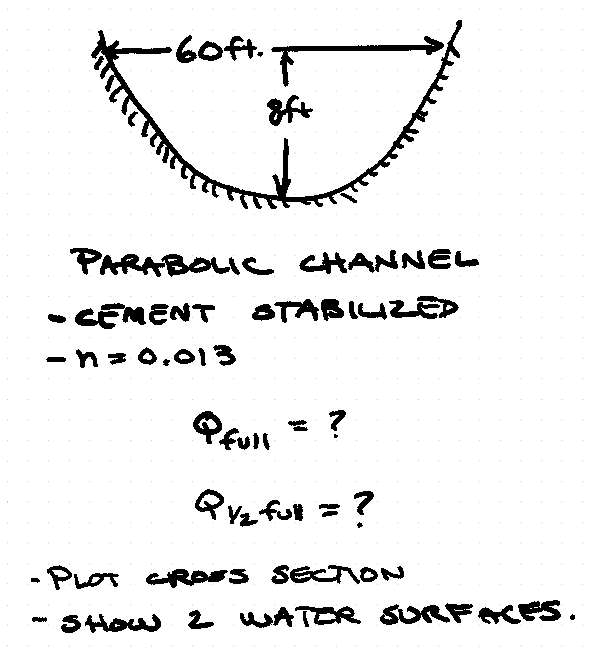 60ft.
8ft
PARABOLIC CHANNEL
- CEMENT STABILIZED
- n = 0.013
Qfull = ?
Q1/2 full = ?
- PLOT CROSS SECTION
- SHOW 2 WATER SURFACES.